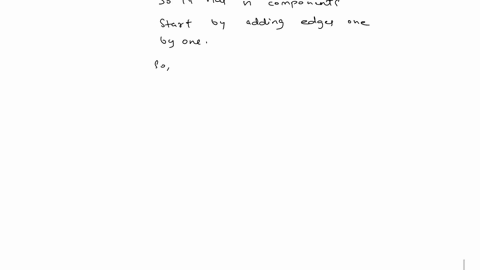 so it has n components
Start by adding edges one
by one.
So,